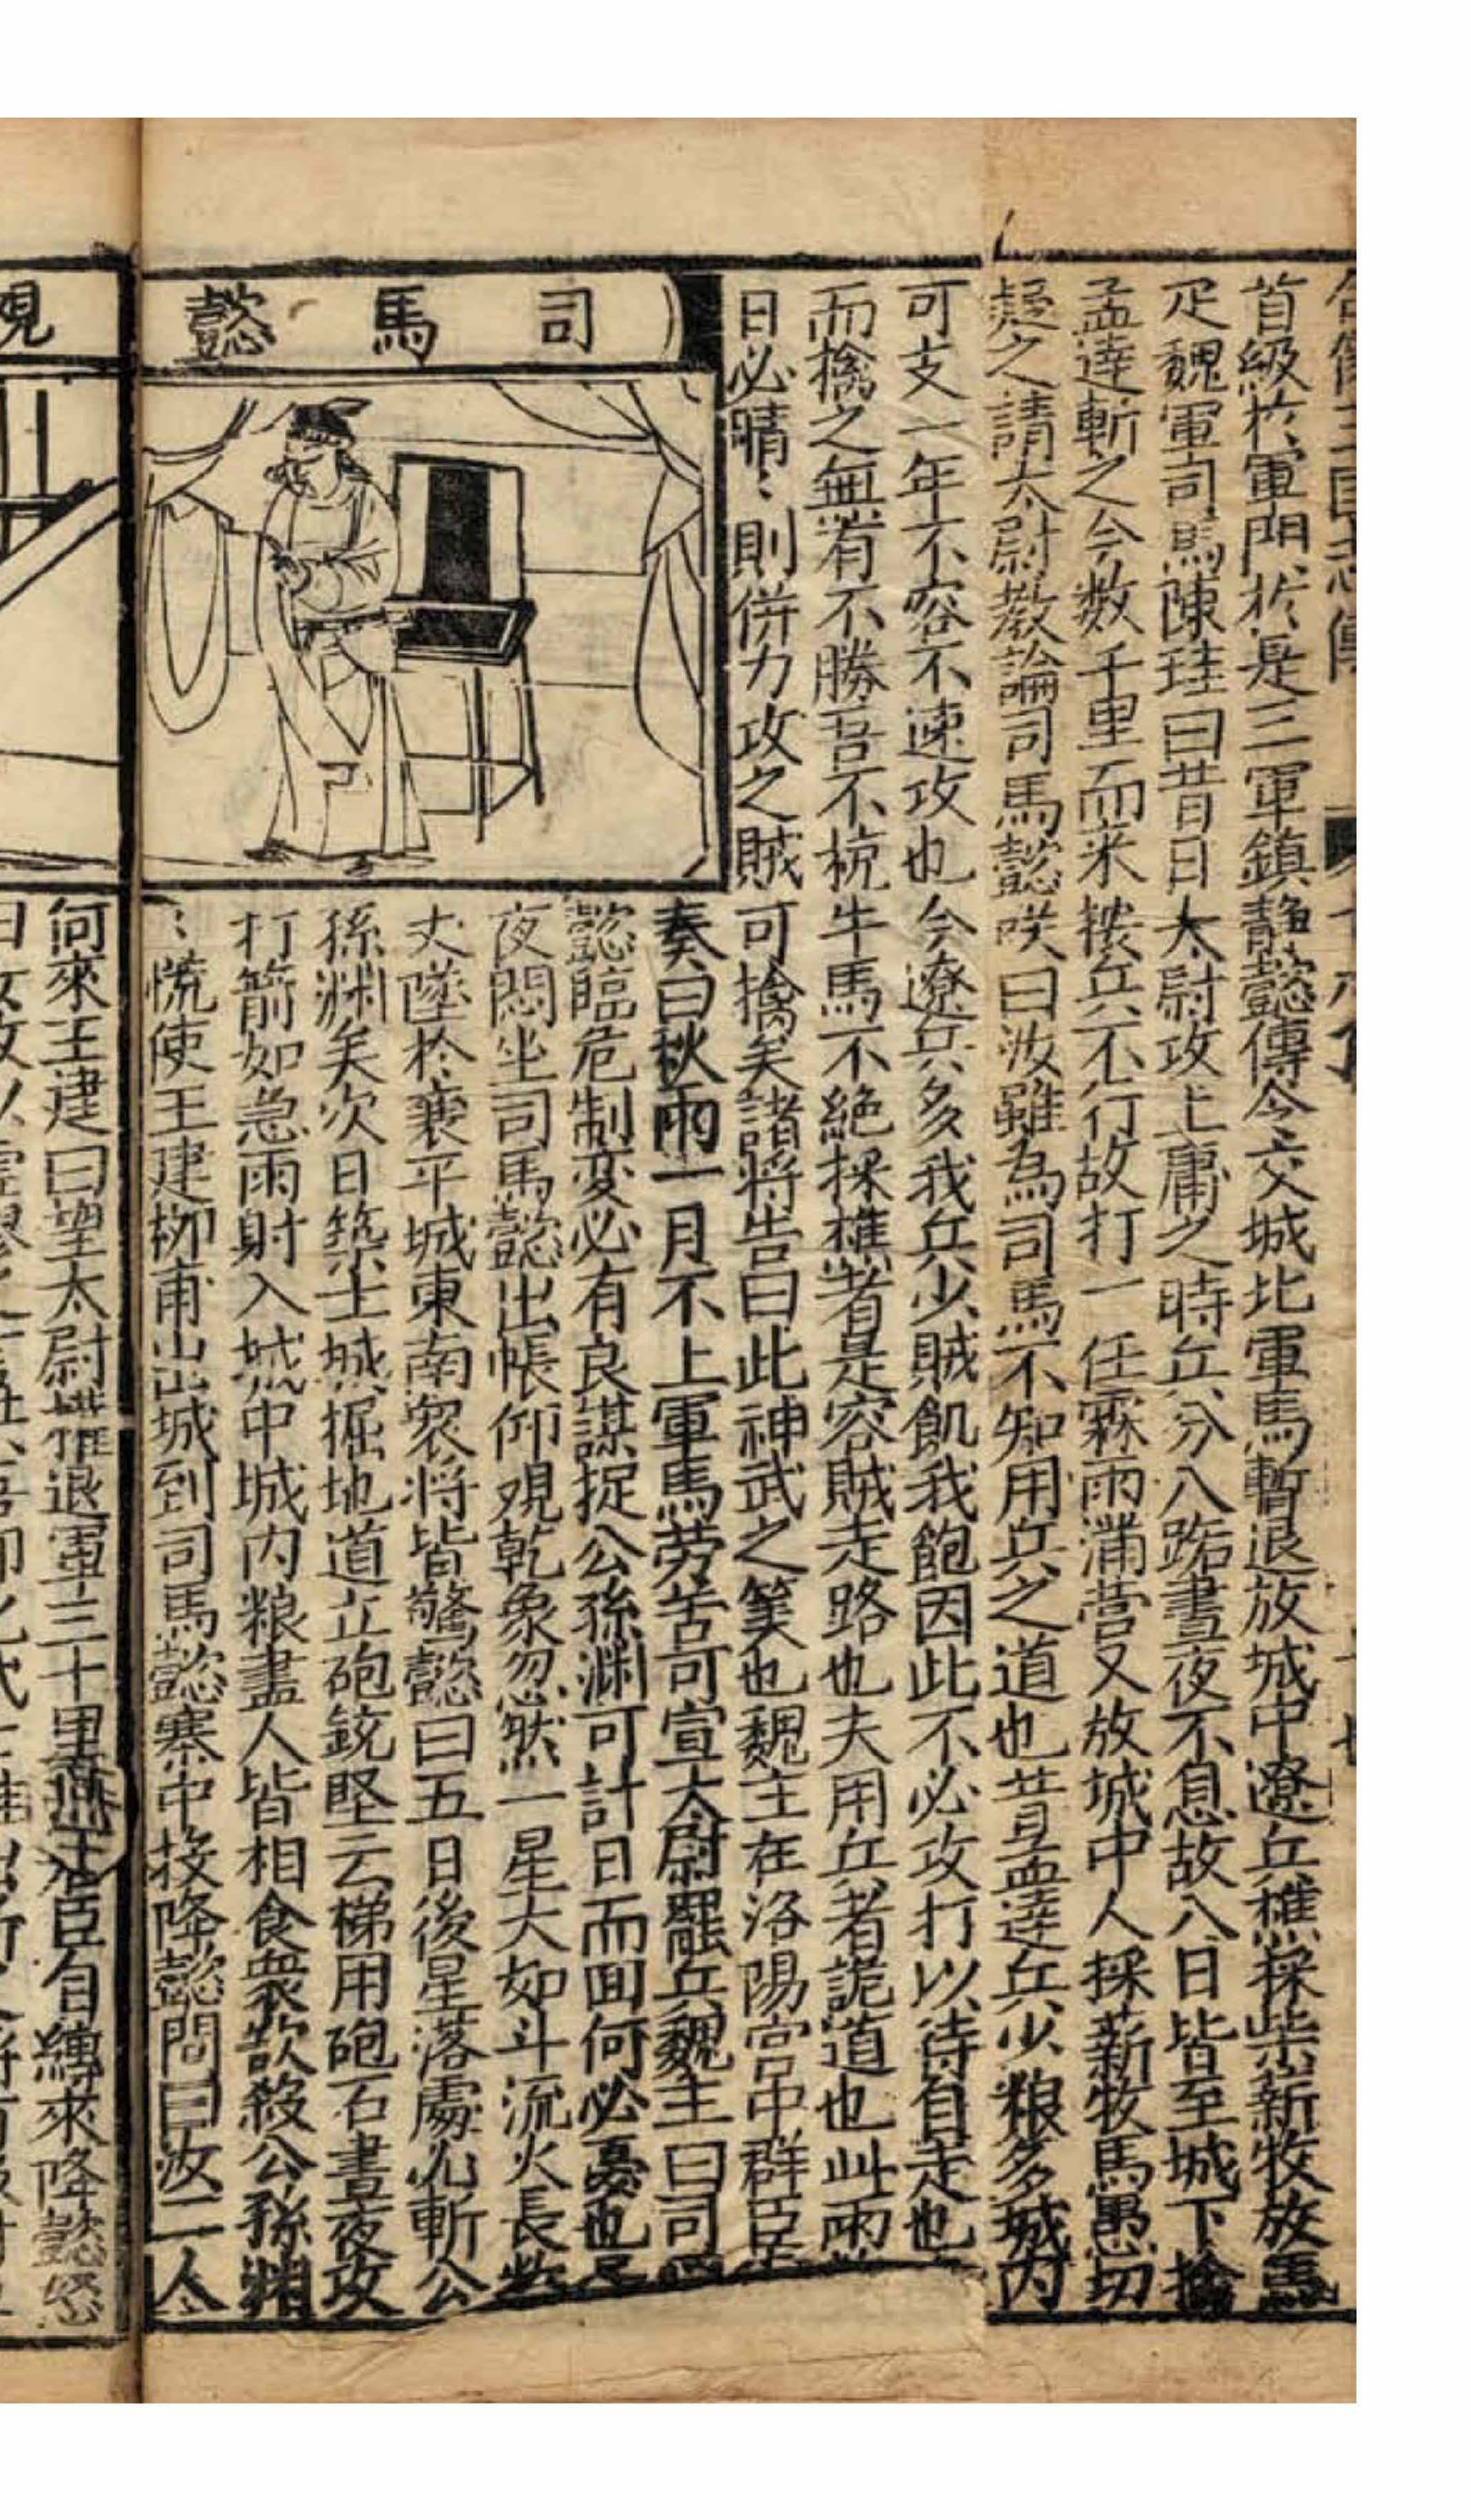 首級於軍門於是三軍鎮静懿傳令交城北軍馬暫退放城中遼兵樵採柴薪牧放馬
疋魏軍司馬陳珪曰昔日太尉攻上庸之時兵分八路晝夜不息故八日皆至城下擒
孟達斬之今数千里而来按兵不行故打一任霖雨滿营又放城中人採薪牧馬愚切
疑之請太尉教論司馬懿咲曰汝雖為司馬不知用兵之道也昔孟達兵少粮多城内
可支一年不容不速攻也今遼兵多我兵少賊飢我飽因此不必攻打以待自走也
而擒之無有不勝吾不梳牛馬不絶採樵者是容賊走路也夫用兵者詭道也此雨
日必晴〻則併力攻之賊可擒矣諸將告曰此神武之筭也魏主在洛陽宫中群臣
奏曰秋雨一月不上軍馬劳苦可宣太尉罷兵魏主曰司
懿臨危制变必有良謀捉公孫渊可計日而囬何必憂也
夜悶坐司馬懿出帳仰观乾象忽然一星大如斗流火長
丈墜於襄平城東南衆将皆驚懿曰五日後星落處必斬公
孫渊矣次日築土城掘地道立砲銃堅云梯用砲石晝夜攻
打箭如急雨射入城中城内粮盡人皆相食衆欲殺公孫渊
〻慌使王建柳甫出城到司馬懿寨中投降懿問曰汝二人
司馬懿
何來王建曰望太尉權退軍三十里燕王君臣自縛來降懿怒